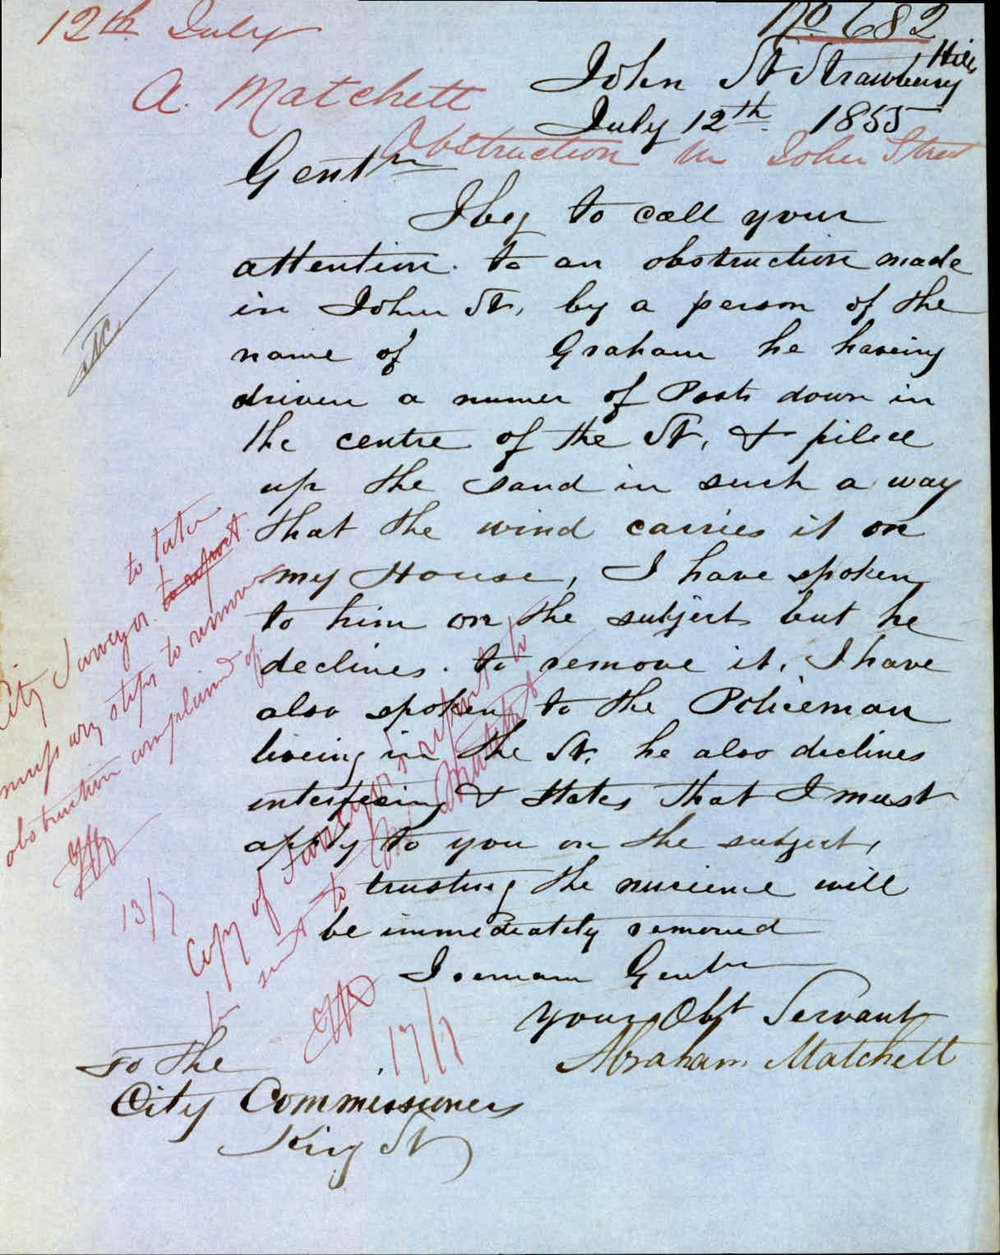 12th July
No 682
A. Matchett
John St Strawberry Hills
July 12th 1855
Obstruction in John Street
Gentn
I beg to call your
attention. to an obstruction made
in John St, by a person of the
name of Graham he having
driven a numer of Posts down in
the centre of the St, & piled
up the sand in such a way
that the wind carries it on
my House, I have spoken
to him on the subject but he
declines. to remove it. I have
also spoken to the Policeman
living in the St. he also declines
interfering & states that I must
apply to you on the subject,
trusting the nucience will
be immediately removed
I remain Gentn
Your Obt Servant
Abraham Matchett
To the
City Commissioners
King St
City Surveyor. to report. to take
necessary steps to remove
obstruction complained of.
13/7
Copy of Surveyors report to
be sent to Mr Matchett
17/7